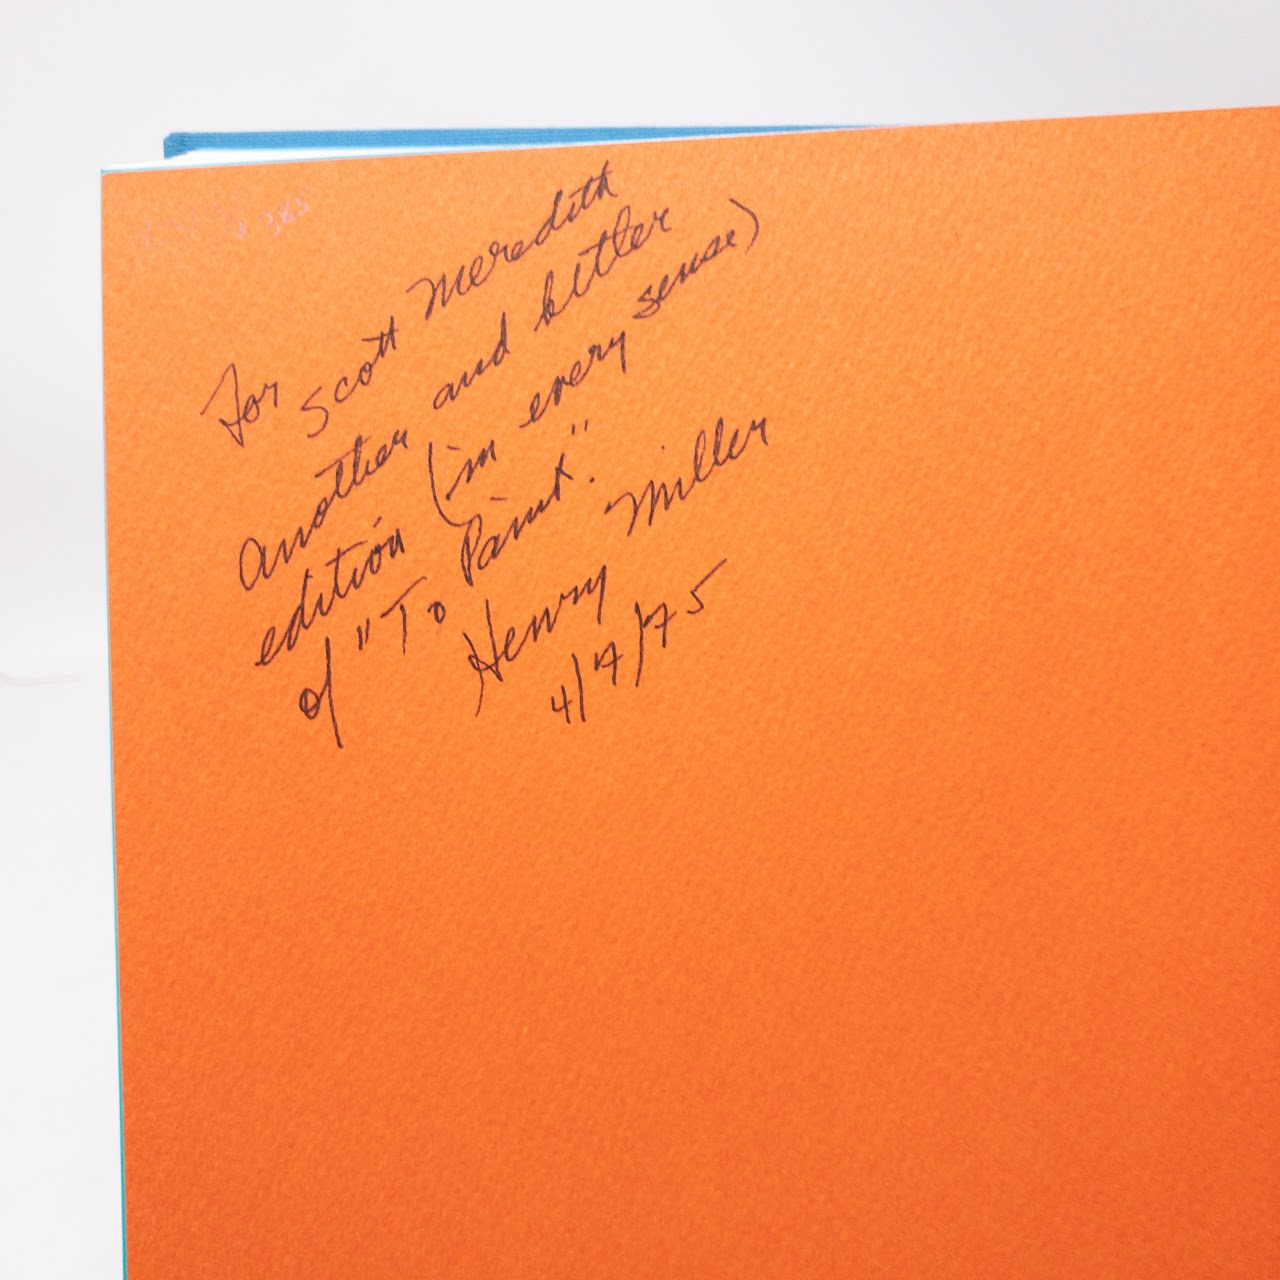 For Scott Meredith
another and better
edition (in every sense)
of "To Paint".
Henry Miller
4/7/75